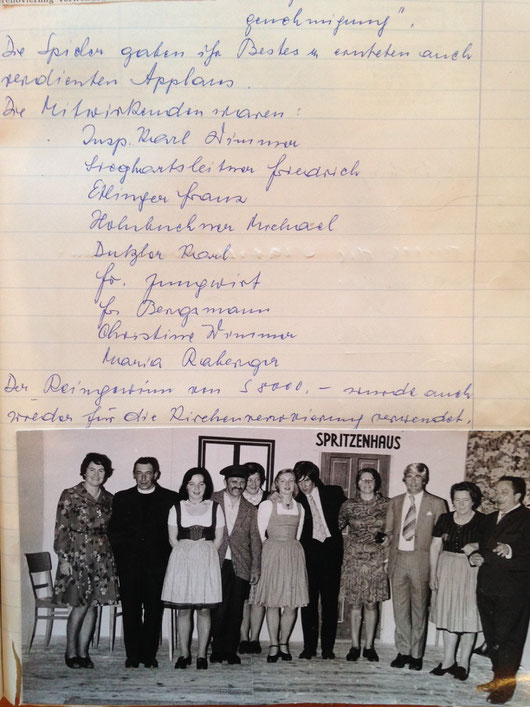 genehmigung".
Die Spieler gaben ihr Bestes u ernteten auch
verdienten Applaus.
Die Mitwirkenden waren:
Insp. Karl Wimmer
Sieghartsleitner Friedrich
Etlinger Franz
Hohnbuchner Michael
Dutzler Karl
Fr. Jungwirt
Fr. Bergsmann
Christine Wimmer
Maria Raberger
Der Reingewinn von S 8000.- wurde auch
wieder für die Kirchenrenovierung verwendet.
SPRITZENHAUS